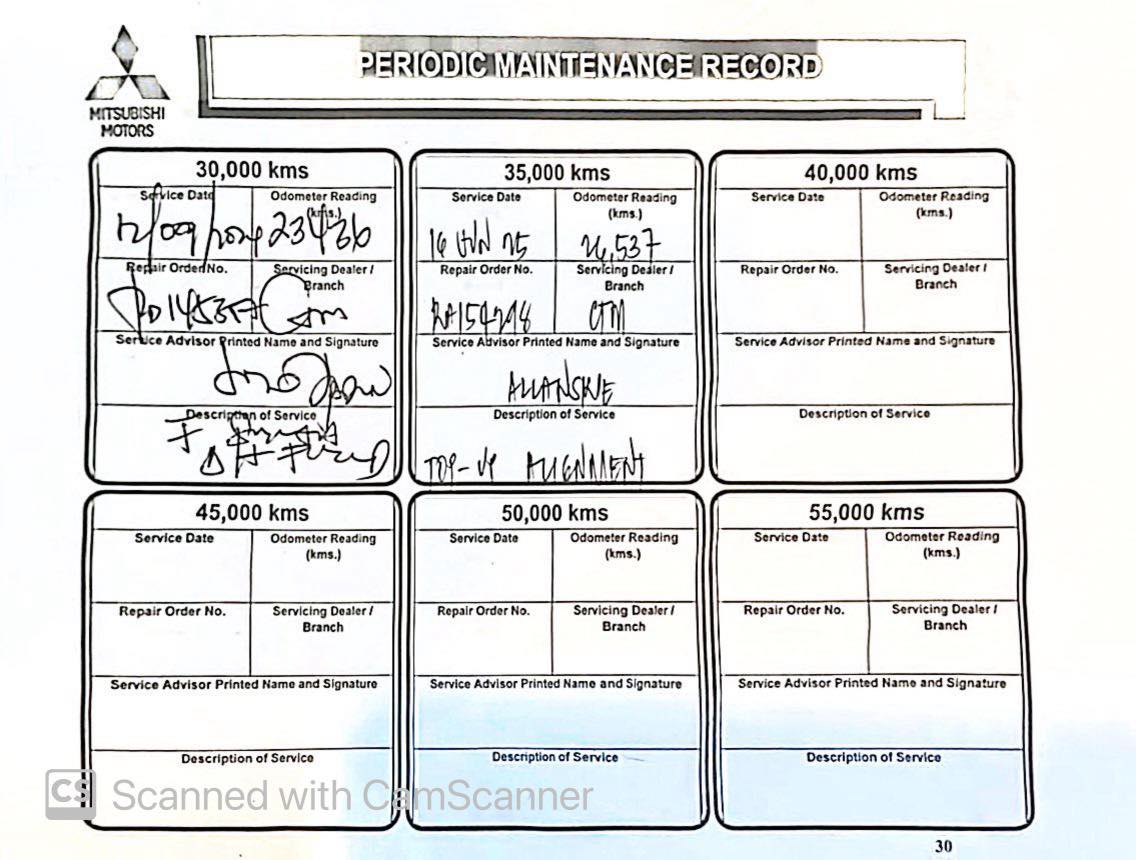 MITSUBISHI
MOTORS
PERIODIC MAINTENANCE RECORD
30,000 kms
Service Date
Odometer Reading
(kms.)
12/09/2024
23436
Repair Order No.
Servicing Dealer /
Branch
Service Advisor Printed Name and Signature
Description of Service
35,000 kms
Service Date
Odometer Reading
(kms.)
16 JUN 25
26,537
Repair Order No.
Servicing Dealer /
Branch
RA154298
CTM
Service Advisor Printed Name and Signature
Description of Service
TOP-UP ALIGNMENT
40,000 kms
Service Date
Odometer Reading
(kms.)
Repair Order No.
Servicing Dealer /
Branch
Service Advisor Printed Name and Signature
Description of Service
45,000 kms
Service Date
Odometer Reading
(kms.)
Repair Order No.
Servicing Dealer /
Branch
Service Advisor Printed Name and Signature
Description of Service
50,000 kms
Service Date
Odometer Reading
(kms.)
Repair Order No.
Servicing Dealer /
Branch
Service Advisor Printed Name and Signature
Description of Service
55,000 kms
Service Date
Odometer Reading
(kms.)
Repair Order No.
Servicing Dealer /
Branch
Service Advisor Printed Name and Signature
Description of Service
CS Scanned with CamScanner
30